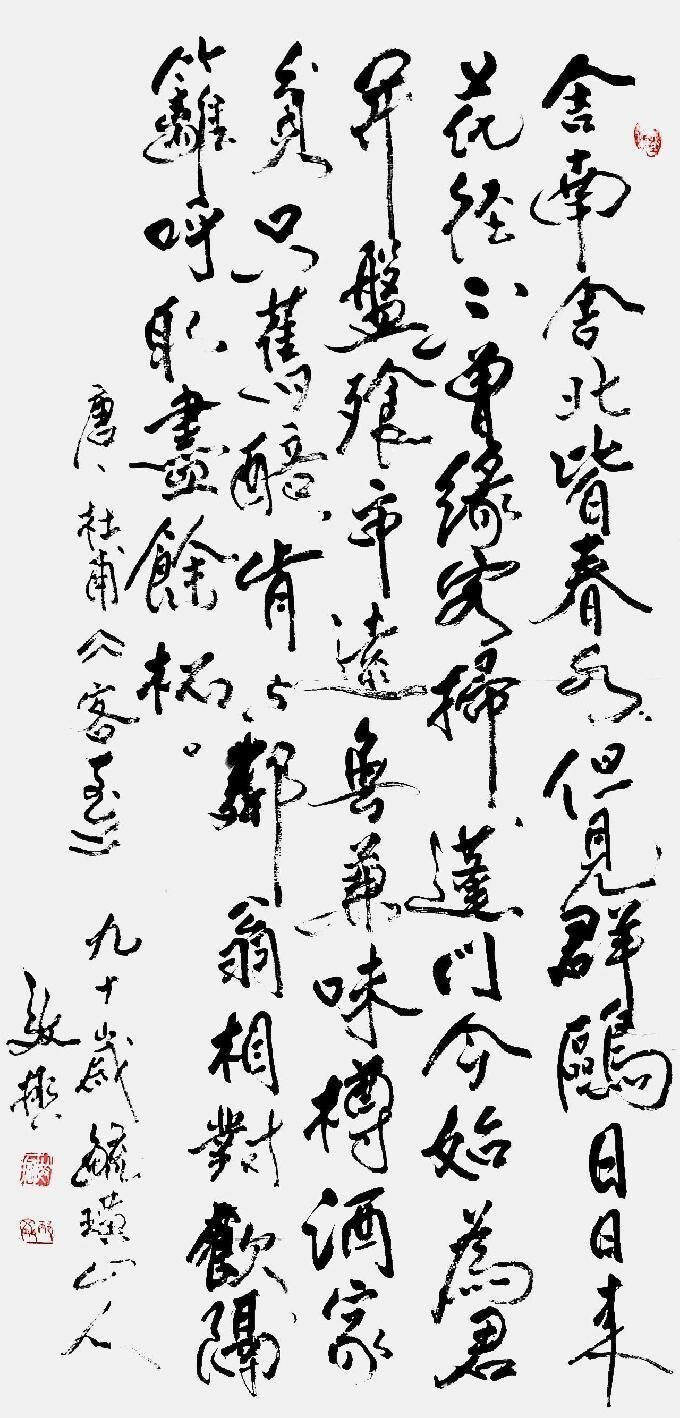 舍南舍北皆春水但見群鷗日日来
花径不曾緣客掃蓬門今始為君
开盤飱市遠無兼味樽酒家
貧只舊醅肯与鄰翁相對飲隔
籬呼取盡餘杯。
唐、杜甫《客至》九十歲毓璜山人